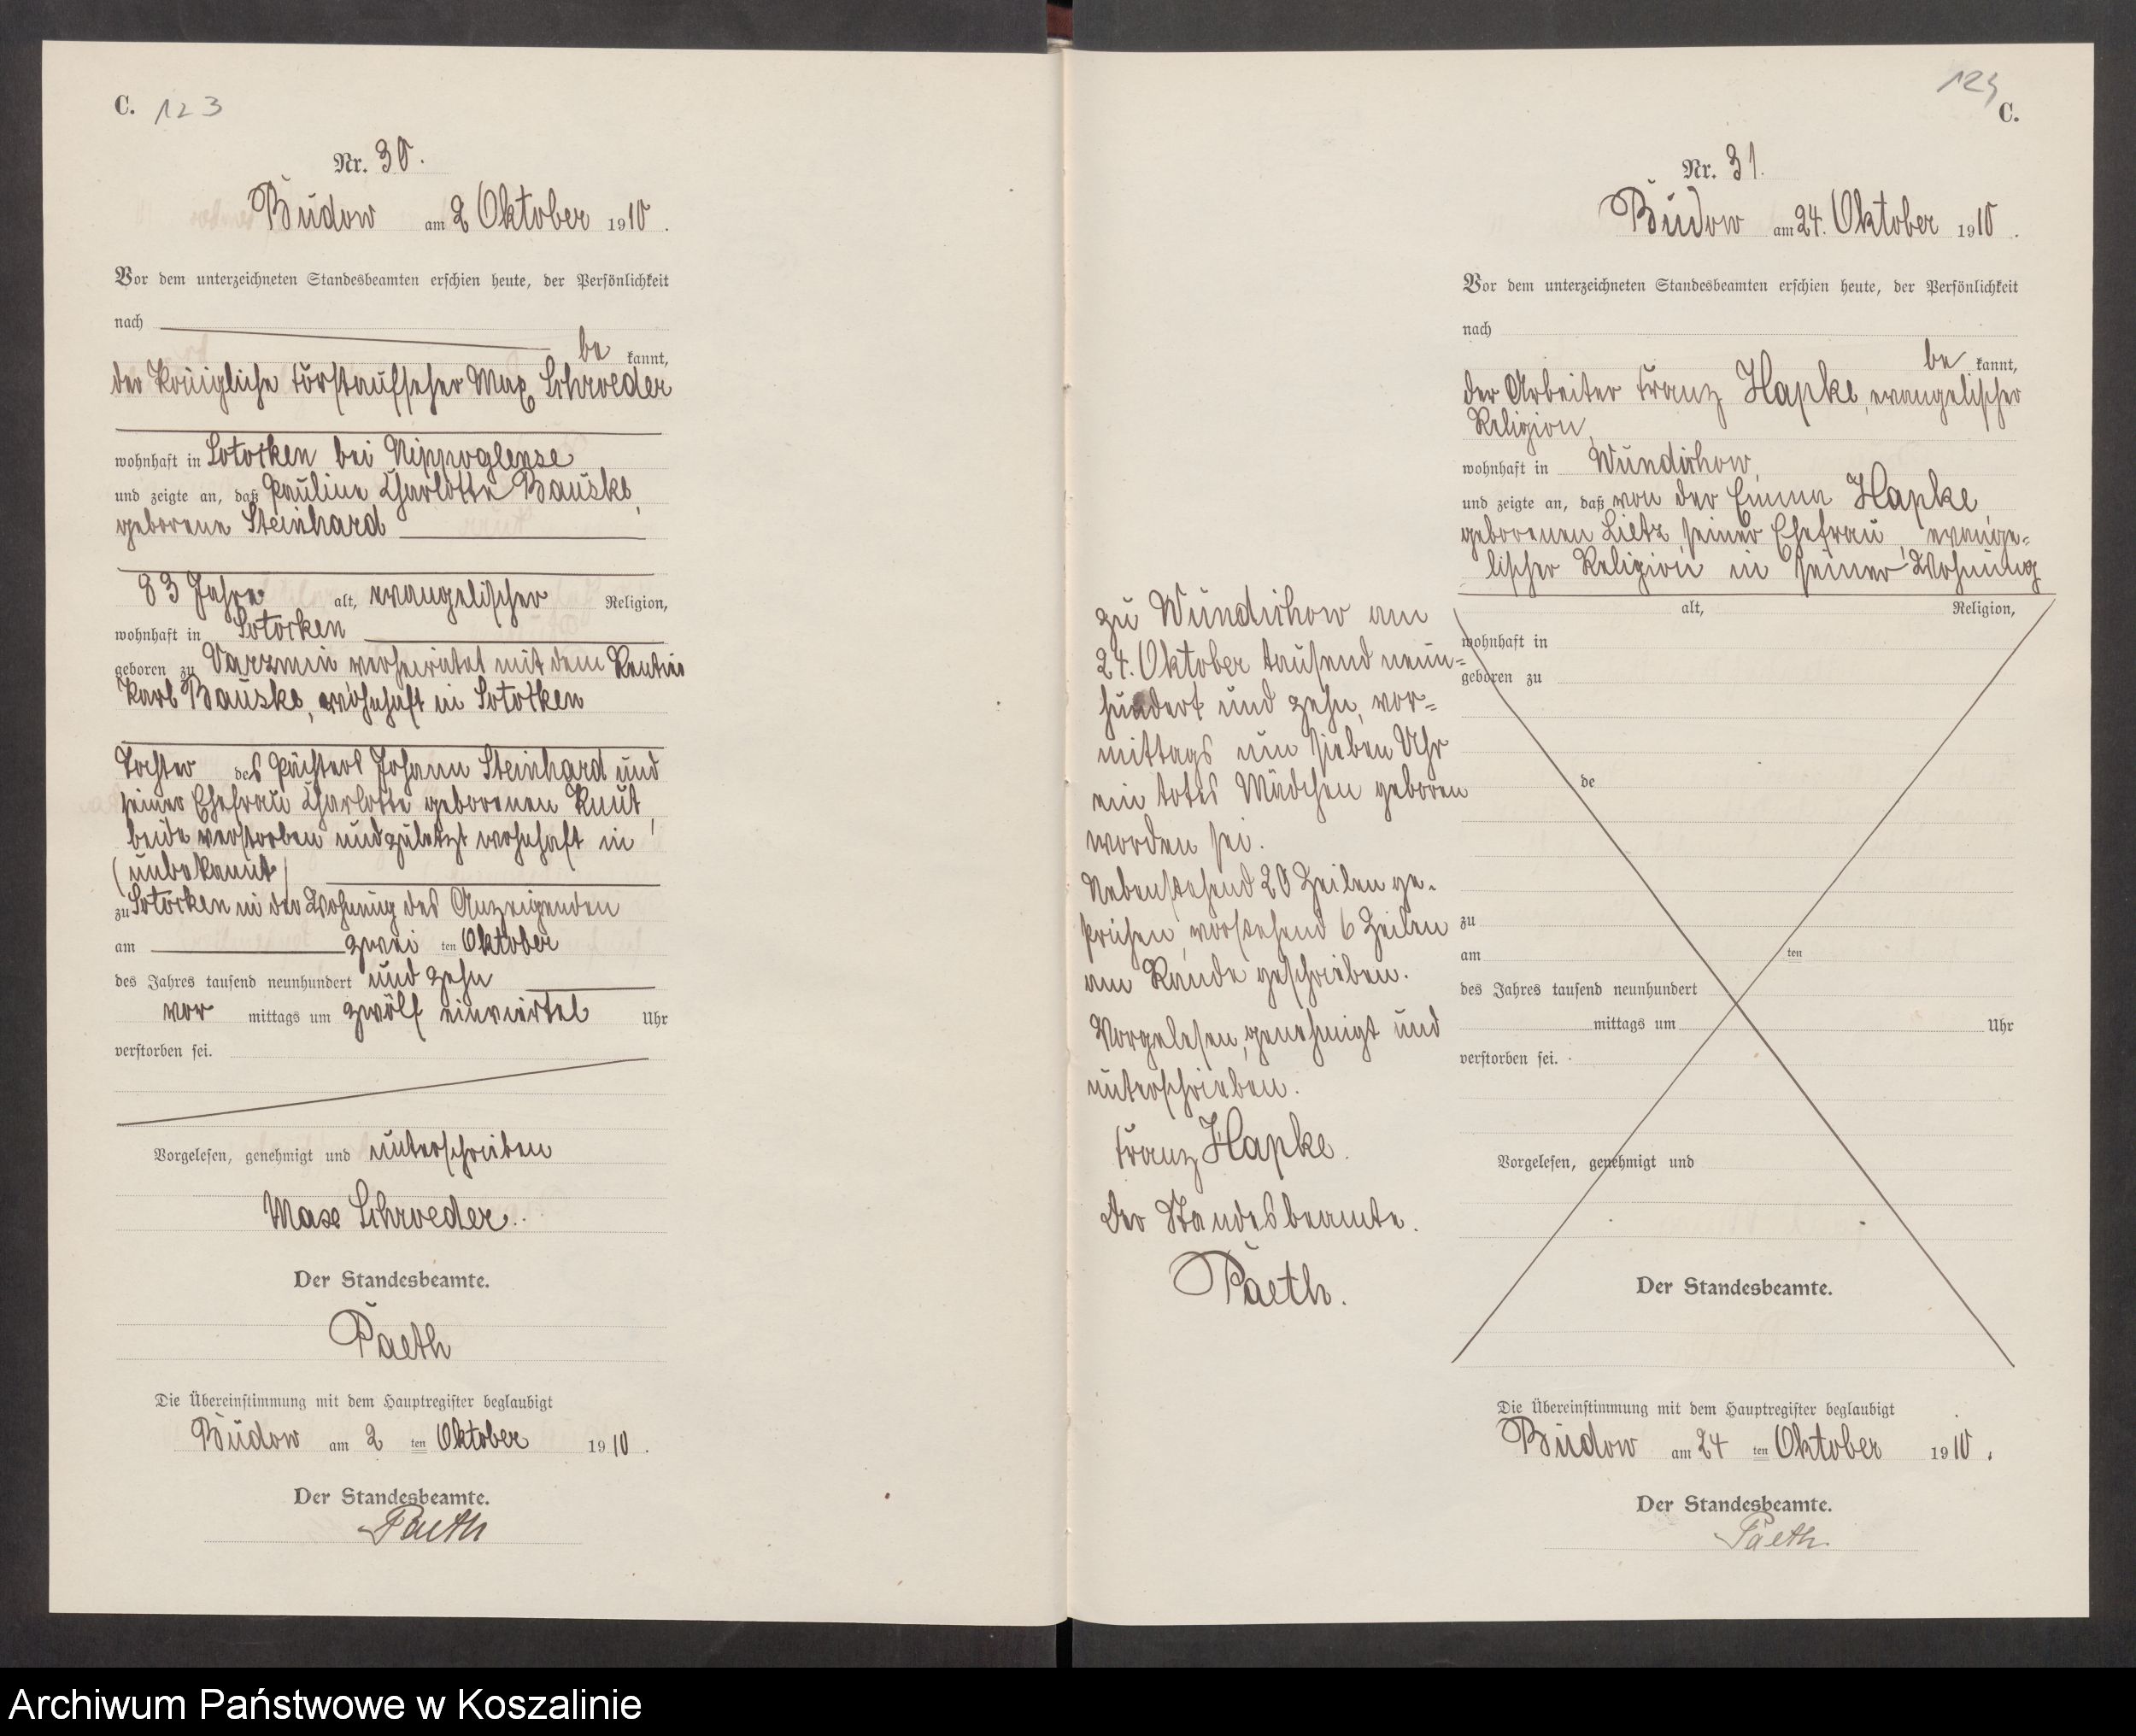 C. 123
Nr. 30.
Budow am 2 Oktober 1910.
Vor dem unterzeichneten Standesbeamten erschien heute, der Persönlichkeit
nach
be kannt,
der Königliche Forstaufseher Max Schroeder
wohnhaft in Sotorken bei Nippoglense
und zeigte an, daß Pauline Charlotte Bauske,
geborene Steinhard
83 Jahre alt, evangelischer Religion,
wohnhaft in Sotorken
geboren zu Varzmin verheiratet mit dem Rentier
Karl Bauske, wohnhaft in Sotorken
Tochter des Pächters Johann Steinhard und
seiner Ehefrau Charlotte geborenen Knut,
beide verstorben und zuletzt wohnhaft in
(unbekannt)
zu Sotorken in der Wohnung des Anzeigenden
am zwei ten Oktober
des Jahres tausend neunhundert und zehn
vor mittags um zwölf einviertel Uhr
verstorben sei.
Vorgelesen, genehmigt und unterschrieben
Max Schroeder.
Der Standesbeamte.
Paeth
Die Übereinstimmung mit dem Hauptregister beglaubigt
Budow am 2 ten Oktober 1910.
Der Standesbeamte.
Paeth
124
C.
Nr. 31.
Budow am 24. Oktober 1910.
Vor dem unterzeichneten Standesbeamten erschien heute, der Persönlichkeit
nach
be kannt,
der Arbeiter Franz Hapke, evangelischer
Religion,
wohnhaft in Wundichow,
und zeigte an, daß von der Emma Hapke
geborenen Lietz, seiner Ehefrau, evange=
lischer Religion in seiner Wohnung
zu Wundichow am
24. Oktober tausend neun=
hundert und zehn, vor=
mittags um sieben Uhr
ein totes Mädchen geboren
worden sei.
Nebenstehend 20 Zeilen ge=
strichen, vorstehend 6 Zeilen
am Rande geschrieben.
Vorgelesen, genehmigt und
unterschrieben.
Franz Hapke.
Der Standesbeamte.
Paeth.
alt, Religion,
wohnhaft in
geboren zu
de
zu
am ten
des Jahres tausend neunhundert
mittags um Uhr
verstorben sei.
Vorgelesen, genehmigt und
Der Standesbeamte.
Die Übereinstimmung mit dem Hauptregister beglaubigt
Budow am 24 ten Oktober 1910.
Der Standesbeamte.
Paeth.
Archiwum Państwowe w Koszalinie